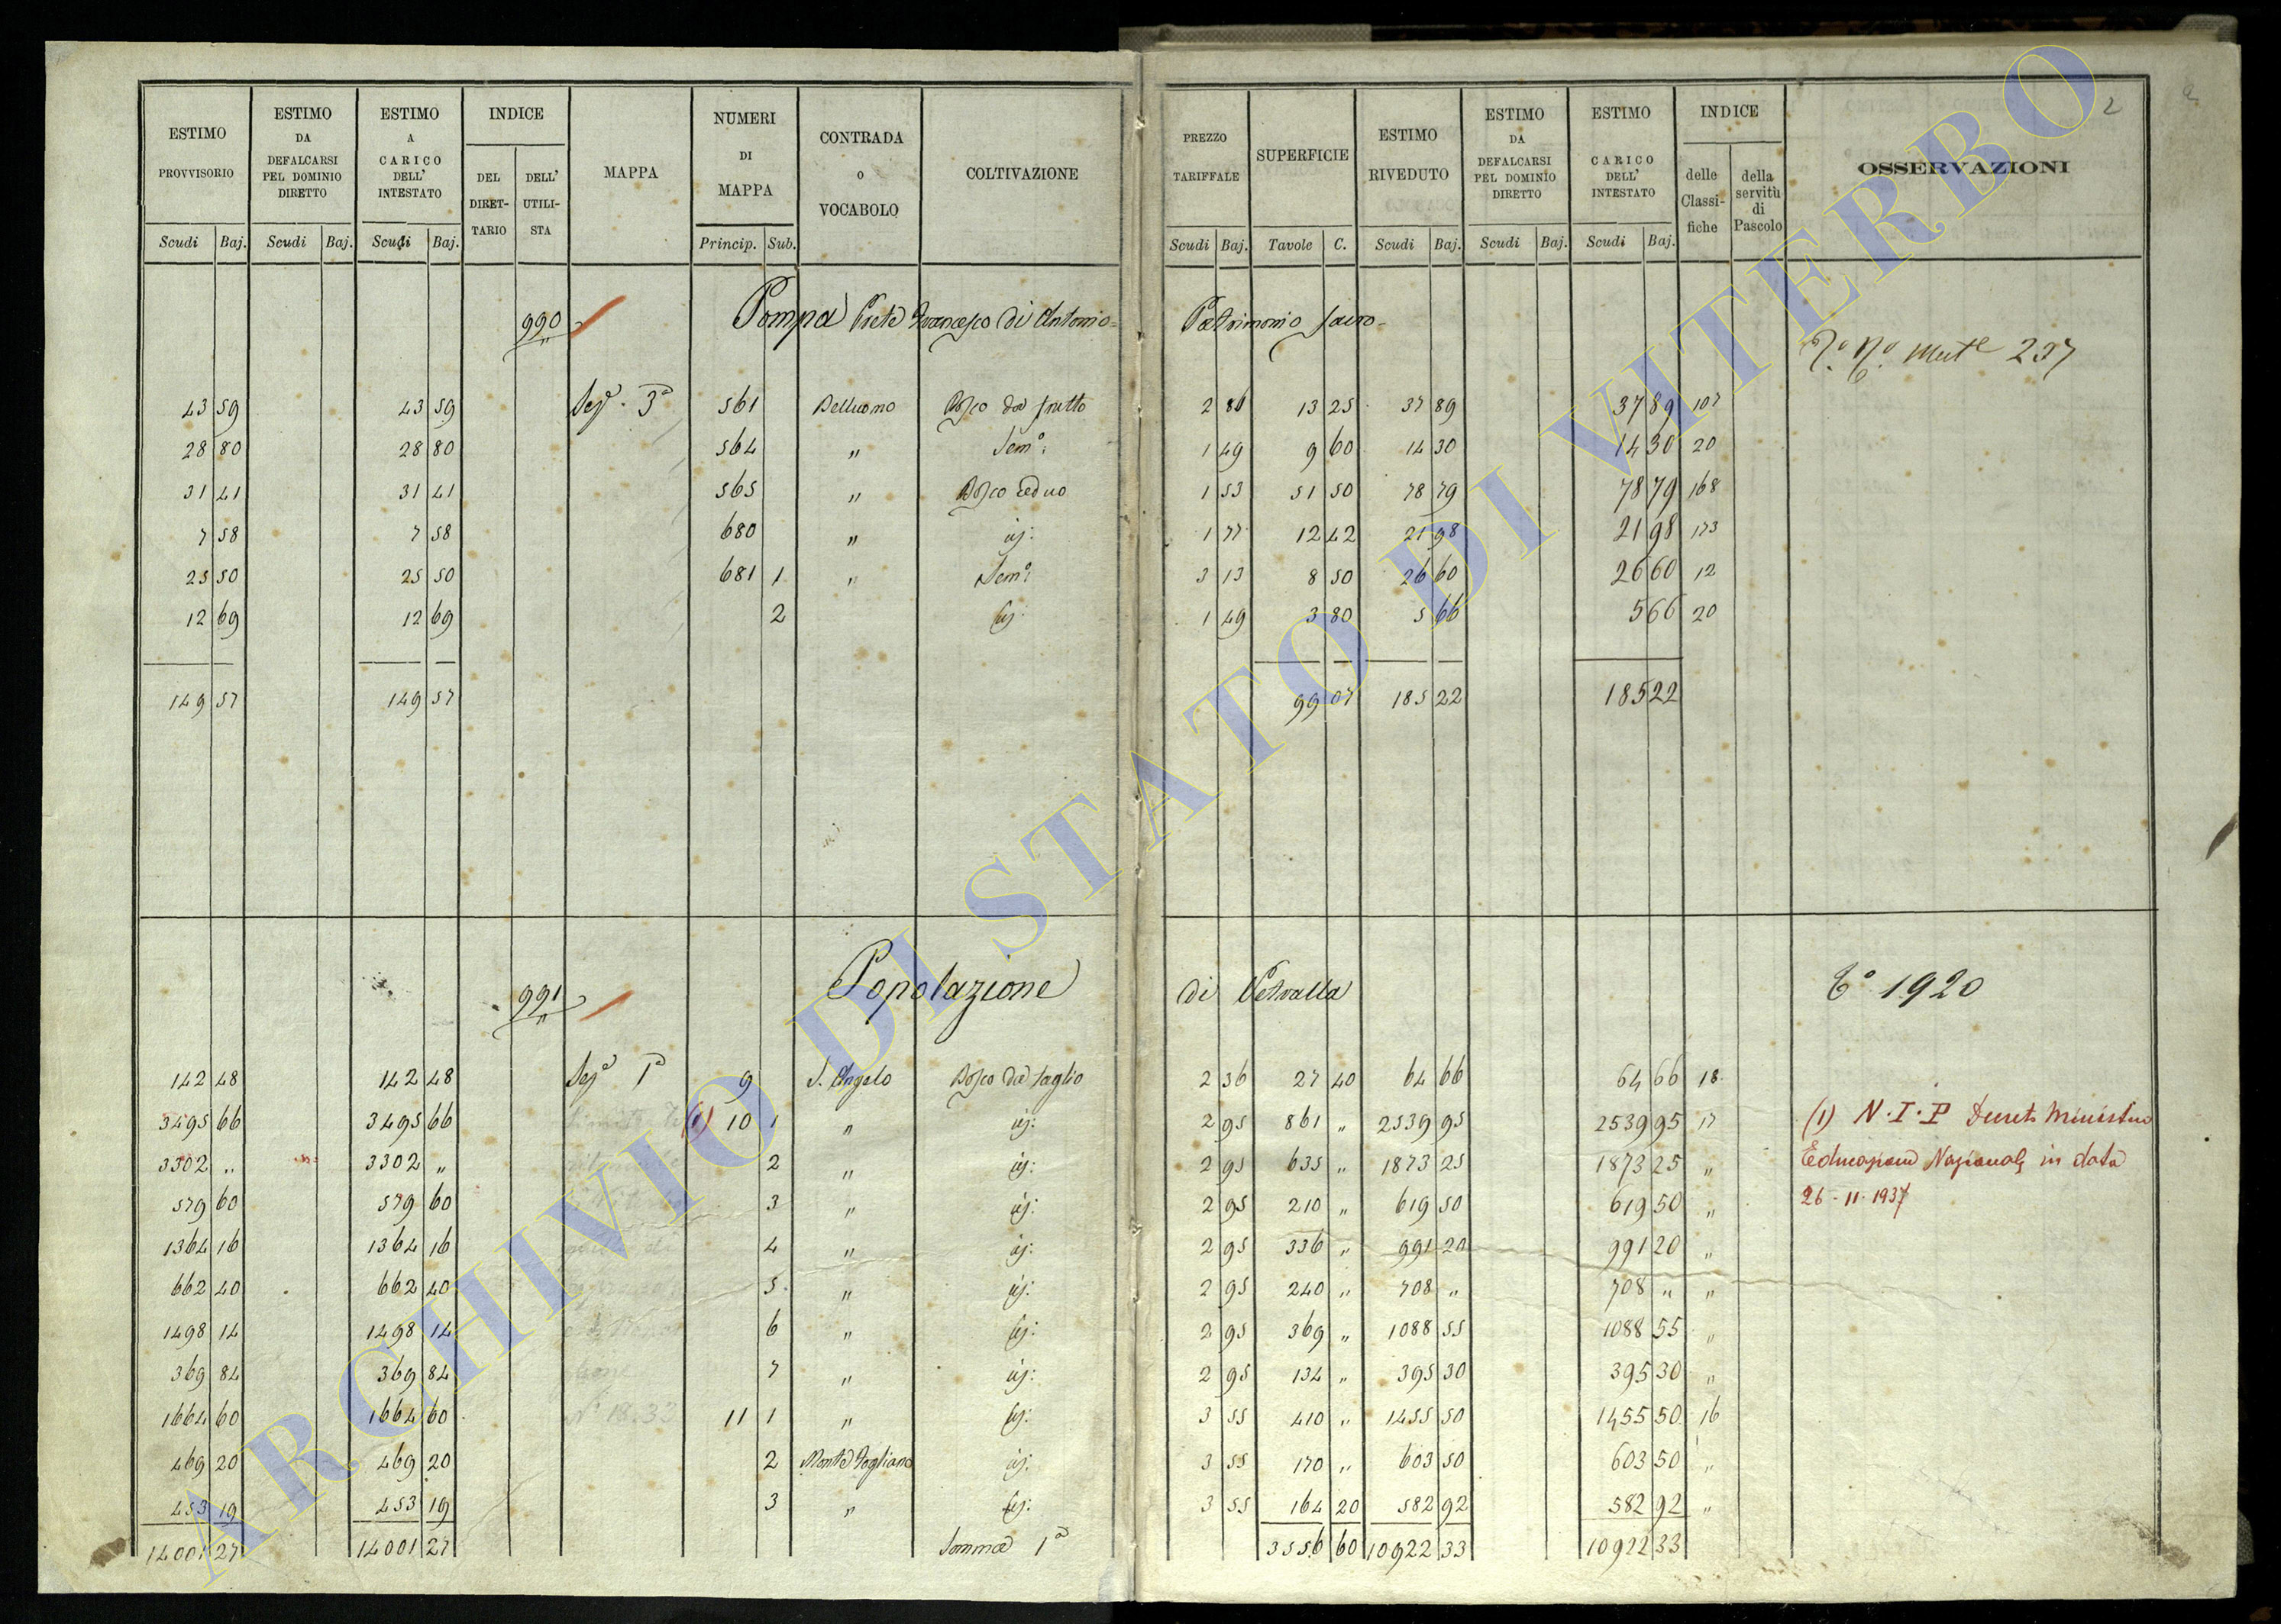 ESTIMO PROVVISORIO | ESTIMO DA DEFALCARSI PEL DOMINIO DIRETTO | ESTIMO A CARICO DELL' INTESTATO | INDICE DEL DIRET-TARIO | DELL' UTILI-STA | MAPPA | NUMERI DI MAPPA | CONTRADA O VOCABOLO | COLTIVAZIONE | PREZZO TARIFFALE | SUPERFICIE | ESTIMO RIVEDUTO | ESTIMO DA DEFALCARSI PEL DOMINIO DIRETTO | ESTIMO A CARICO DELL' INTESTATO | INDICE delle Classi-fiche | della servitù di Pascolo | OSSERVAZIONI
Scudi Baj. | Scudi Baj. | Scudi Baj. | Princip. Sub. | Scudi Baj. | Tavole C. | Scudi Baj. | Scudi Baj. | Scudi Baj.
2
990 Pompa Prete Francesco di Antonio = Patrimonio sacro
237
43 59 | 43 59 | Sez.e 3a | 561 | Belluomo | Bosco da frutto | 2 86 | 13 25 | 37 89 | 37 89 | 107
28 80 | 28 80 | 564 | " | Sem.o | 1 49 | 9 60 | 14 30 | 14 30 | 20
31 41 | 31 41 | 565 | " | Bosco ceduo | 1 53 | 51 50 | 78 79 | 78 79 | 168
7 58 | 7 58 | 680 | " | id: | 1 77 | 12 42 | 21 98 | 21 98 | 173
25 50 | 25 50 | 681 1 | " | Sem.o | 3 13 | 8 50 | 26 60 | 26 60 | 12
12 69 | 12 69 | 2 | id: | 1 49 | 3 80 | 5 66 | 5 66 | 20
149 57 | 149 57 | 99 07 | 185 22 | 185 22
991 Popolazione di Vetralla
1920
142 48 | 142 48 | Sez.e 1a | 9 | S. Angelo | Bosco da taglio | 2 36 | 27 40 | 64 66 | 64 66 | 18
3495 66 | 3495 66 | (1) 10 1 | " | id: | 2 95 | 861 " | 2539 95 | 2539 95 | 17 | (1) N.I.P Decreto Ministero
3302 " | 3302 " | 2 | " | id: | 2 95 | 635 " | 1873 25 | 1873 25 | " | Educazione Nazionale in data
579 60 | 579 60 | 3 | " | id: | 2 95 | 210 " | 619 50 | 619 50 | " | 26-11-1937
1364 16 | 1364 16 | 4 | " | id: | 2 95 | 336 " | 991 20 | 991 20 | "
662 40 | 662 40 | 5 | " | id: | 2 95 | 240 " | 708 " | 708 " | "
1498 14 | 1498 14 | 6 | " | id: | 2 95 | 369 " | 1088 55 | 1088 55 | "
369 84 | 369 84 | 7 | " | id: | 2 95 | 134 " | 395 30 | 395 30 | "
1664 60 | 1664 60 | 11 1 | " | id: | 3 55 | 410 " | 1455 50 | 1455 50 | 16
469 20 | 469 20 | 2 | Monte Fogliano | id: | 3 55 | 170 " | 603 50 | 603 50 | "
453 19 | 453 19 | 3 | " | id: | 3 55 | 164 20 | 582 92 | 582 92 | "
14001 27 | 14001 27 | Somma 1a | 3556 60 | 10922 33 | 10922 33
ARCHIVIO DI STATO DI VITERBO